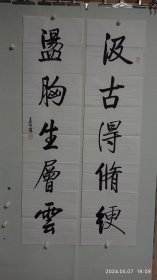 汲古得脩绠
盪胸生層雲
2024.05.07 19:09